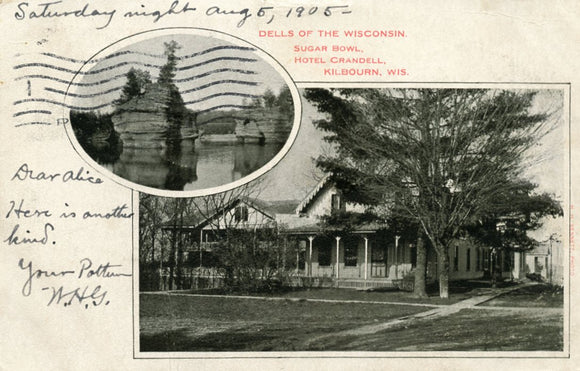 Saturday night Aug 5, 1905-
DELLS OF THE WISCONSIN.
SUGAR BOWL,
HOTEL CRANDELL,
KILBOURN, WIS.
Dear Alice
Here is another
kind.
Your
W.H.G.